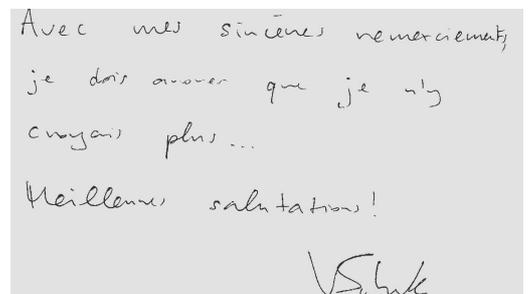 Avec mes sincères remerciements,
je dois avouer que je n'y
croyais plus...
Meilleures salutations!